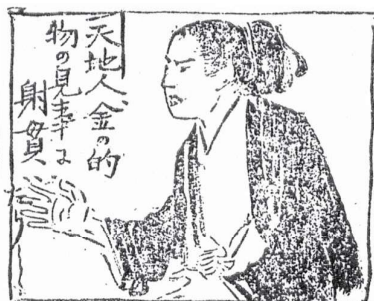 天地人、金の的
物の見事に
射貫